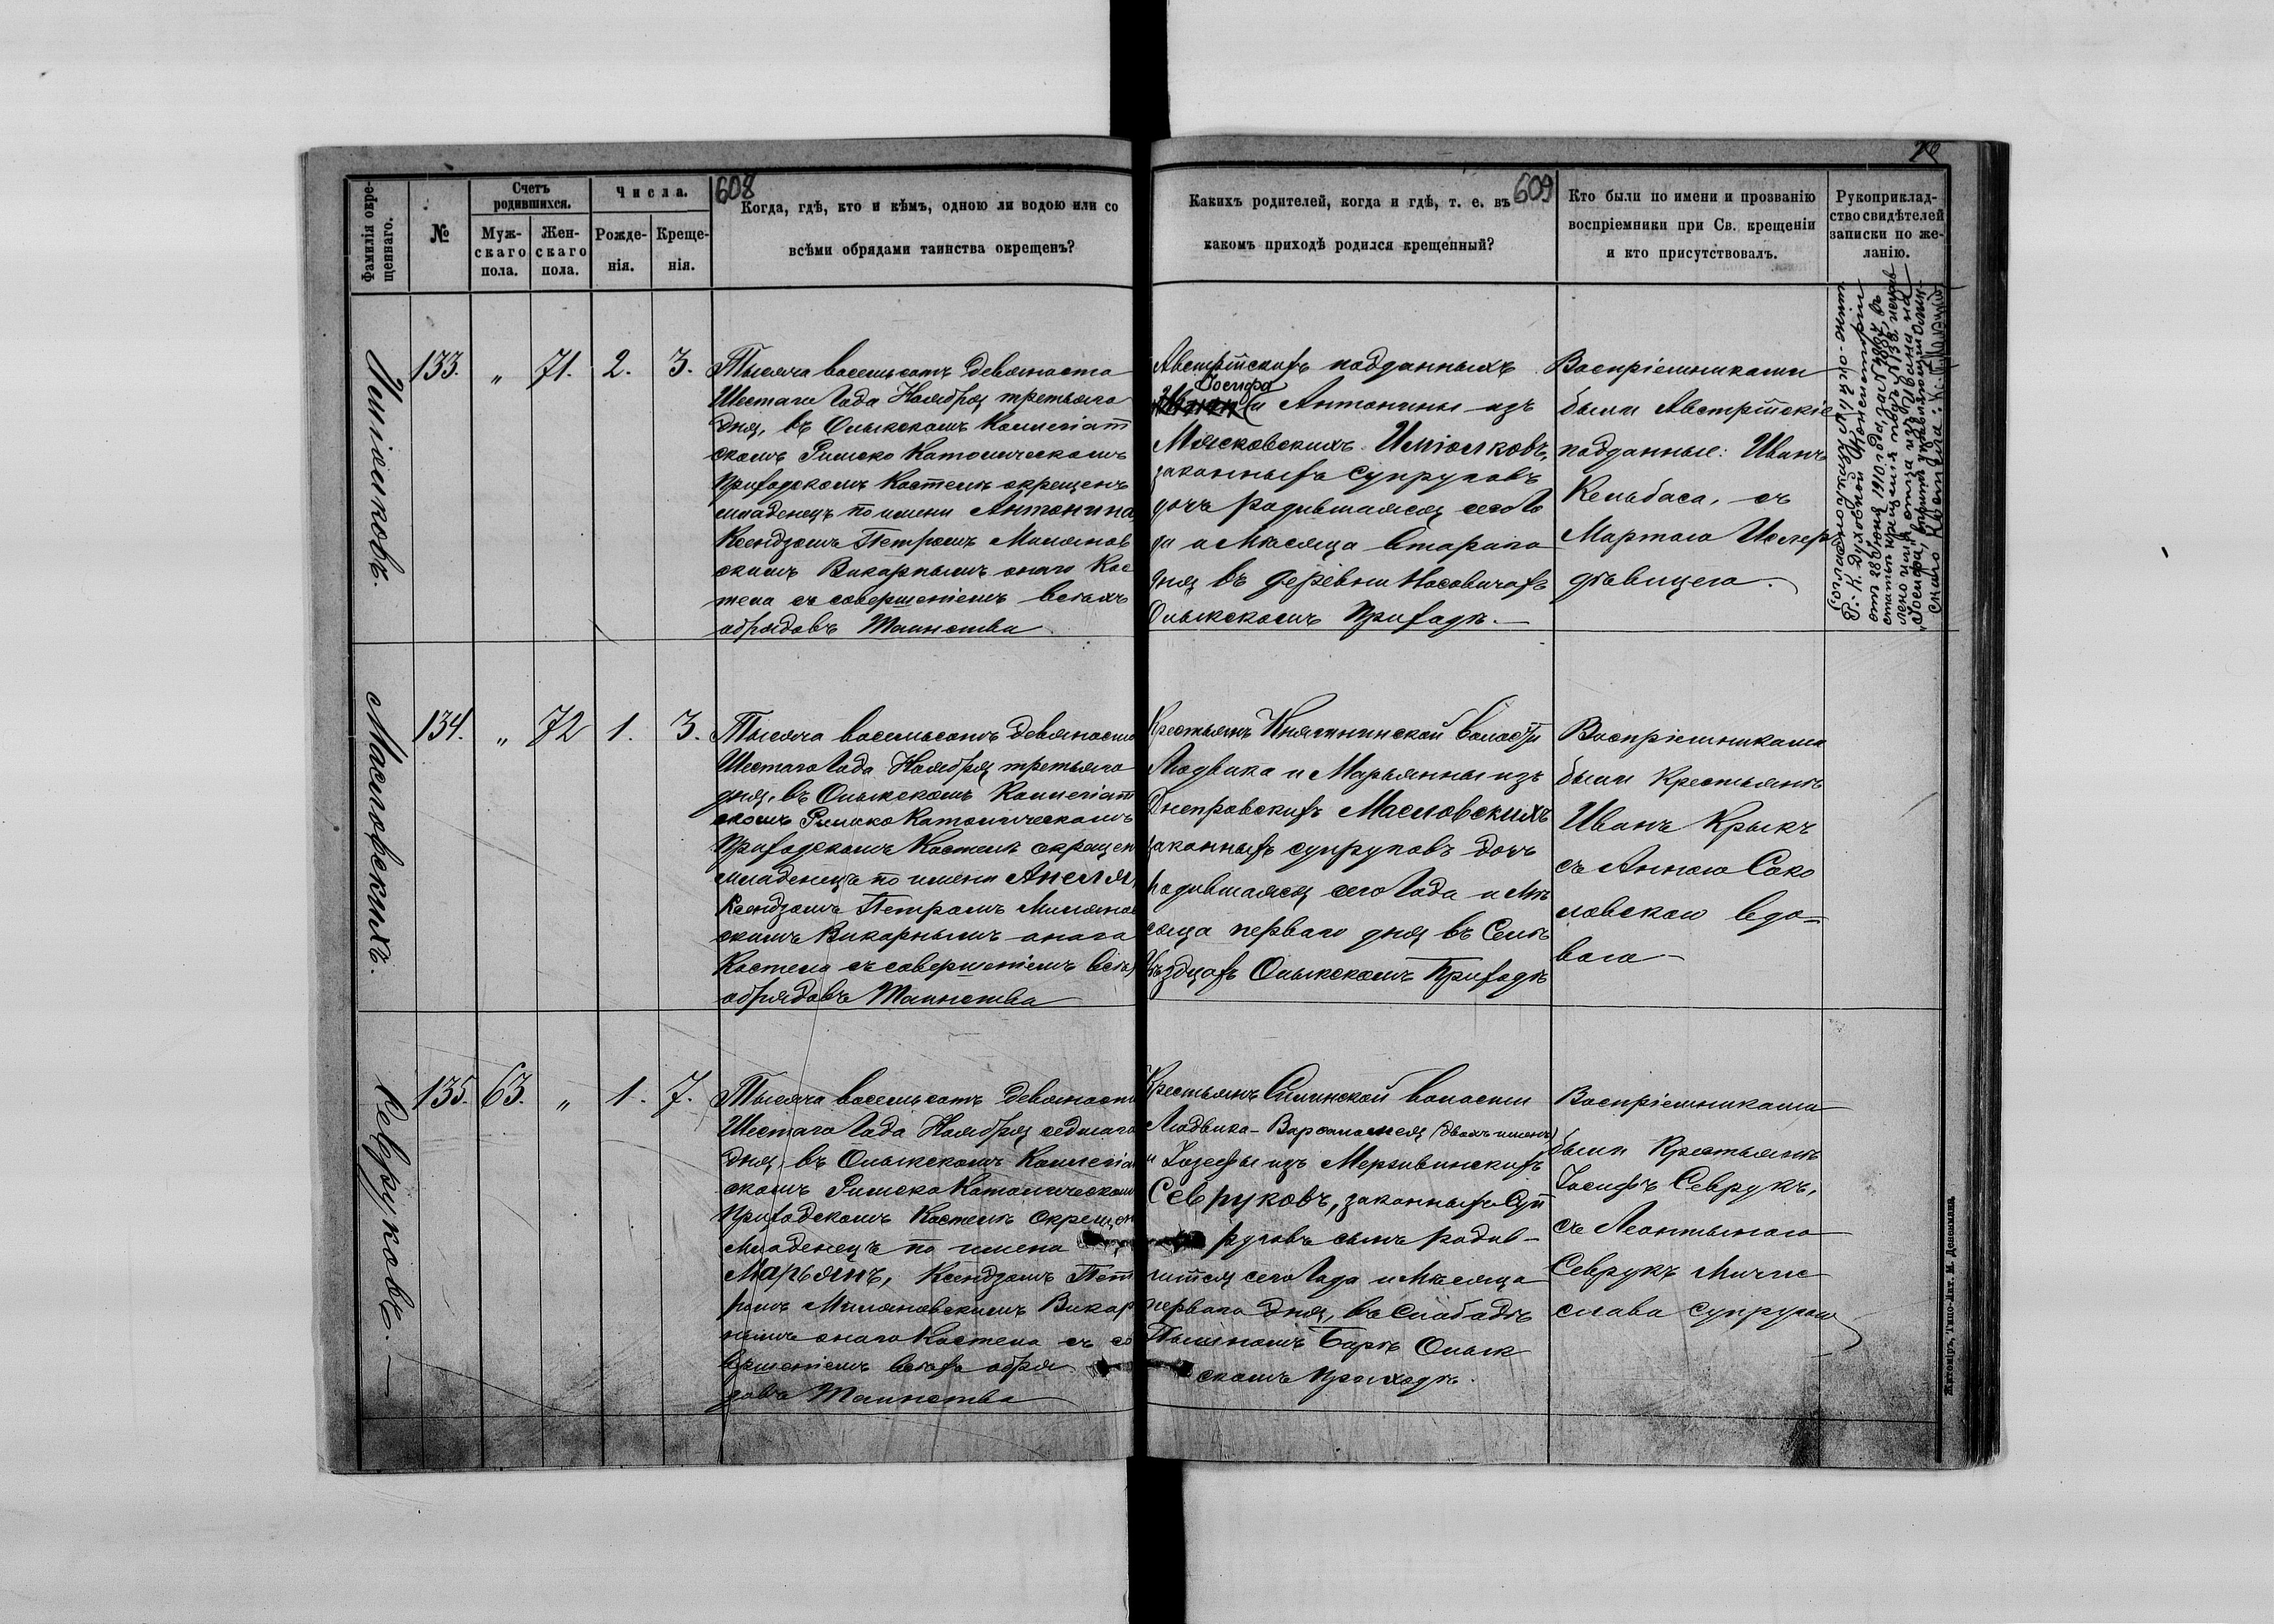 608
609
Фамилія окре-
щеннаго.
№
Счетъ
родившихся.
Муж-
скаго
пола.
Жен-
скаго
пола.
Числа.
Рожде-
нія.
Креще-
нія.
Когда, гдѣ, кто и кѣмъ, одною ли водою или со
всѣми обрядами таинства окрещенъ?
Какихъ родителей, когда и гдѣ, т. е. въ
какомъ приходѣ родился крещенный?
Кто были по имени и прозванію
воспріемники при Св. крещеніи
и кто присутствовалъ.
Рукоприклад-
ство свидѣтелей
записки по же-
ланію.
133.
„
71.
2.
3.
Тысяча восемьсотъ девяноста
Шестаго Года Ноября третьяго
дня, въ Олыкскомъ Коллегіат
скомъ Римско Католическомъ
Приходскомъ Костелѣ окрещенъ
младенецъ по имени Антонина,
Ксендзомъ Петромъ Миланов
скимъ Викарнымъ онаго Кос
тела съ совершеніемъ всѣхъ
обрядовъ Таинства
Австрійскихъ подданныхъ
Іосифа
и Антонины изъ
законныхъ Супруговъ
дочь родившаяся сего Го
да и Мѣсяца втораго
дня въ деревни Носовичахъ
Олыкскомъ Приходѣ.
Воспріемниками
были Австрійскіе
подданные: Иванъ
Кельбаса, съ
Мартою
дѣвицею.
Согласно указу Луцко-Жит
Р.-К. Духовной Консисторіи
отъ 28 Іюня 1910 года, за № 4007, въ
статьѣ крещенія подъ № 133, исправ
лено имя отца изъ Ивана на
„Іосифа",
Масловскихъ.
134.
„
72
1.
3.
Тысяча восемьсотъ девяноста
Шестаго Года Ноября третьяго
дня, въ Олыкскомъ Коллегіат
скомъ Римско Католическомъ
Приходскомъ Костелѣ окрещен
младенецъ по имени Анеля,
Ксендзомъ Петромъ Миланов
скимъ Викарнымъ онаго
Костела съ совершеніемъ всѣх
обрядовъ Таинства
Крестьянъ Княгининской волости
Людвика и Марьянны изъ
Днепровскихъ Масловскихъ
законныхъ супруговъ дочь
родившаяся сего Года и Мѣ
сяца перваго дня въ
Олыкскомъ Приходѣ
Воспріемниками
были Крестьянъ
Иванъ Крыкъ
съ Анною Соко
ловскою вдо-
вою
Севруковъ.
135.
63.
„
1.
7.
Тысяча восемьсотъ девяноста
Шестаго Года Ноября седмаго
дня, въ Олыкскомъ Коллегіат
скомъ Римско Католическомъ
Приходскомъ Костелѣ окрещен
младенецъ по имени
Марьянъ, Ксендзомъ Пет
ромъ Милановскимъ Викар
нымъ онаго Костела съ со
вершеніемъ всѣхъ обря
довъ Таинства
Крестьянъ Силинской волости
Людвика-Варфоломея (двахъ именъ)
и Іозефы изъ
Севруковъ, законныхъ Суп
руговъ сынъ родив-
шійся сего Года и Мѣсяца
перваго дня, въ Слободѣ
Олык
скомъ Приходѣ.
Воспріемниками
были Крестьянъ
Іосифъ Севрукъ,
съ Леонтыною
Севрукъ Мичис
слава супругою
Житоміръ, Типо-Лит. М. Дененмана.